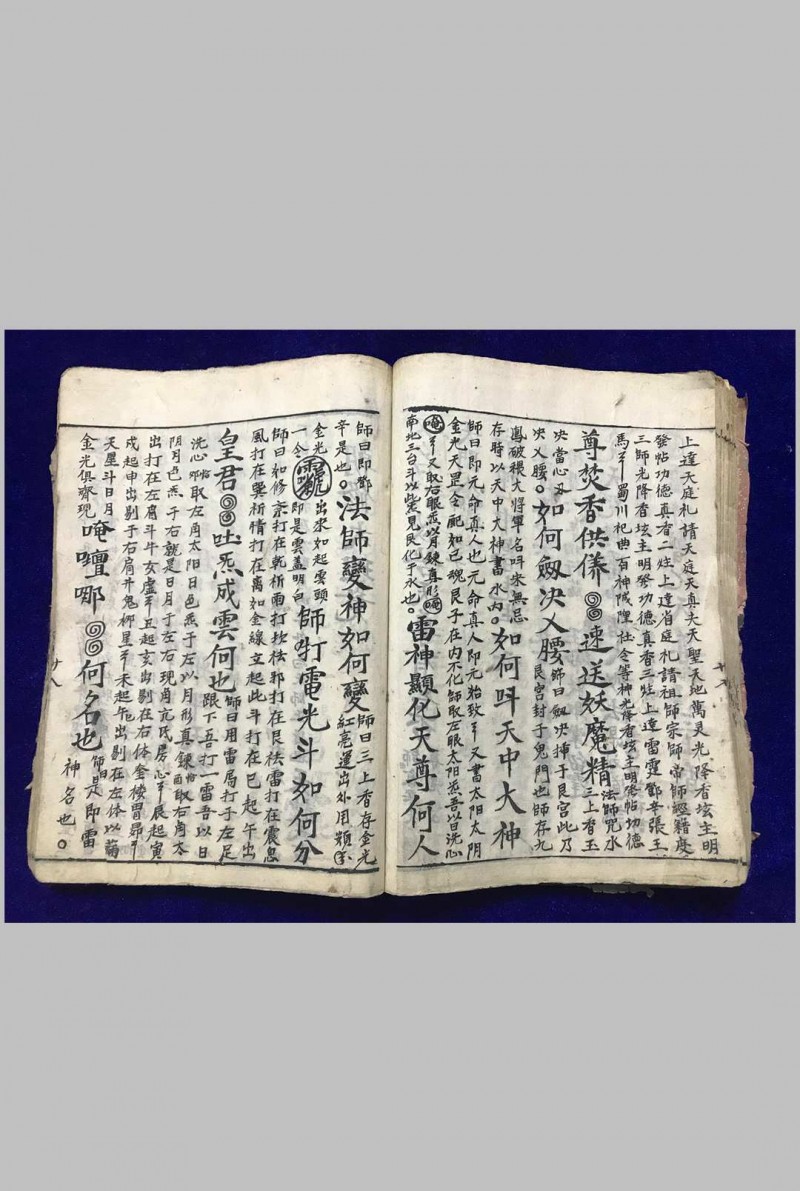 上達天庭札請天庭天真夫天聖天地萬灵光降香坛主明
發帖功德真香二炷上達省庭札請祖師宗師帝師經籍度
三師光降香坛主明發功德真香三炷上達雷霆鄧辛張王
馬蜀川杞曲百神城隍社令等神光降香坛主明發帖功德
尊焚香供儀速送妖魔精三上香玉法師咒水
决當心刃
决入腰。如何劔决入腰師曰劔决挿于艮宮此乃艮宮封于鬼門也師存九
鳳破穢大將軍名呌宋無忌
存時以天中大神書水内。如何呌天中大神
師曰即元命真人也元命真人即元始致又書太阳太阴
金光天罡令配如已魂艮子在内不化師取左眼太阳炁吾以日洗心
唵又取右眼炁以月鍊真形唵雷神顯化天尊何人
南北三台斗以此罡見民化于水也。
師曰即鄧
辛是也。法師變神如何變師曰三上香存金光紅亳運出外用
金光出來如起雲頭
一令即是雲盖明白師打電光斗如何分
師曰如修京打在乾祈雨打在震忽
風打在巽祈情打在离如金線立起此斗打在巳起午出
皇君吐炁成雲何也師曰用雷局打于左足跟下吾打一雷吾以日
洗心取左角太阳日色炁于左以月形真鍊取右角太
阴月色炁于右就是日月于左右現角亢氐房心辰起寅
出打在左肩斗牛女虚丑起亥出剔在右体奎楼胃昴
戍起申出剔于右肩井鬼柳星未起午出剔在左体以
天星斗日月
金光俱齊現唵嚪哪何名也師曰是即雷
神名也。
廿八